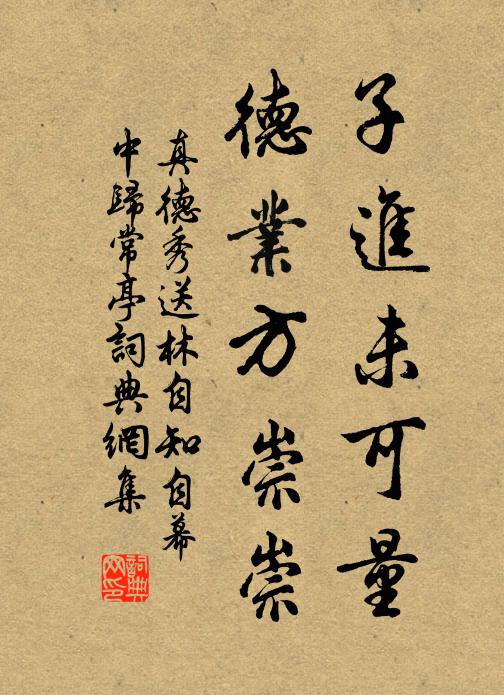 子進未可量
德業方崇崇
真德秀送林自知自幕
中歸常亭詞典網集
詞典
网印